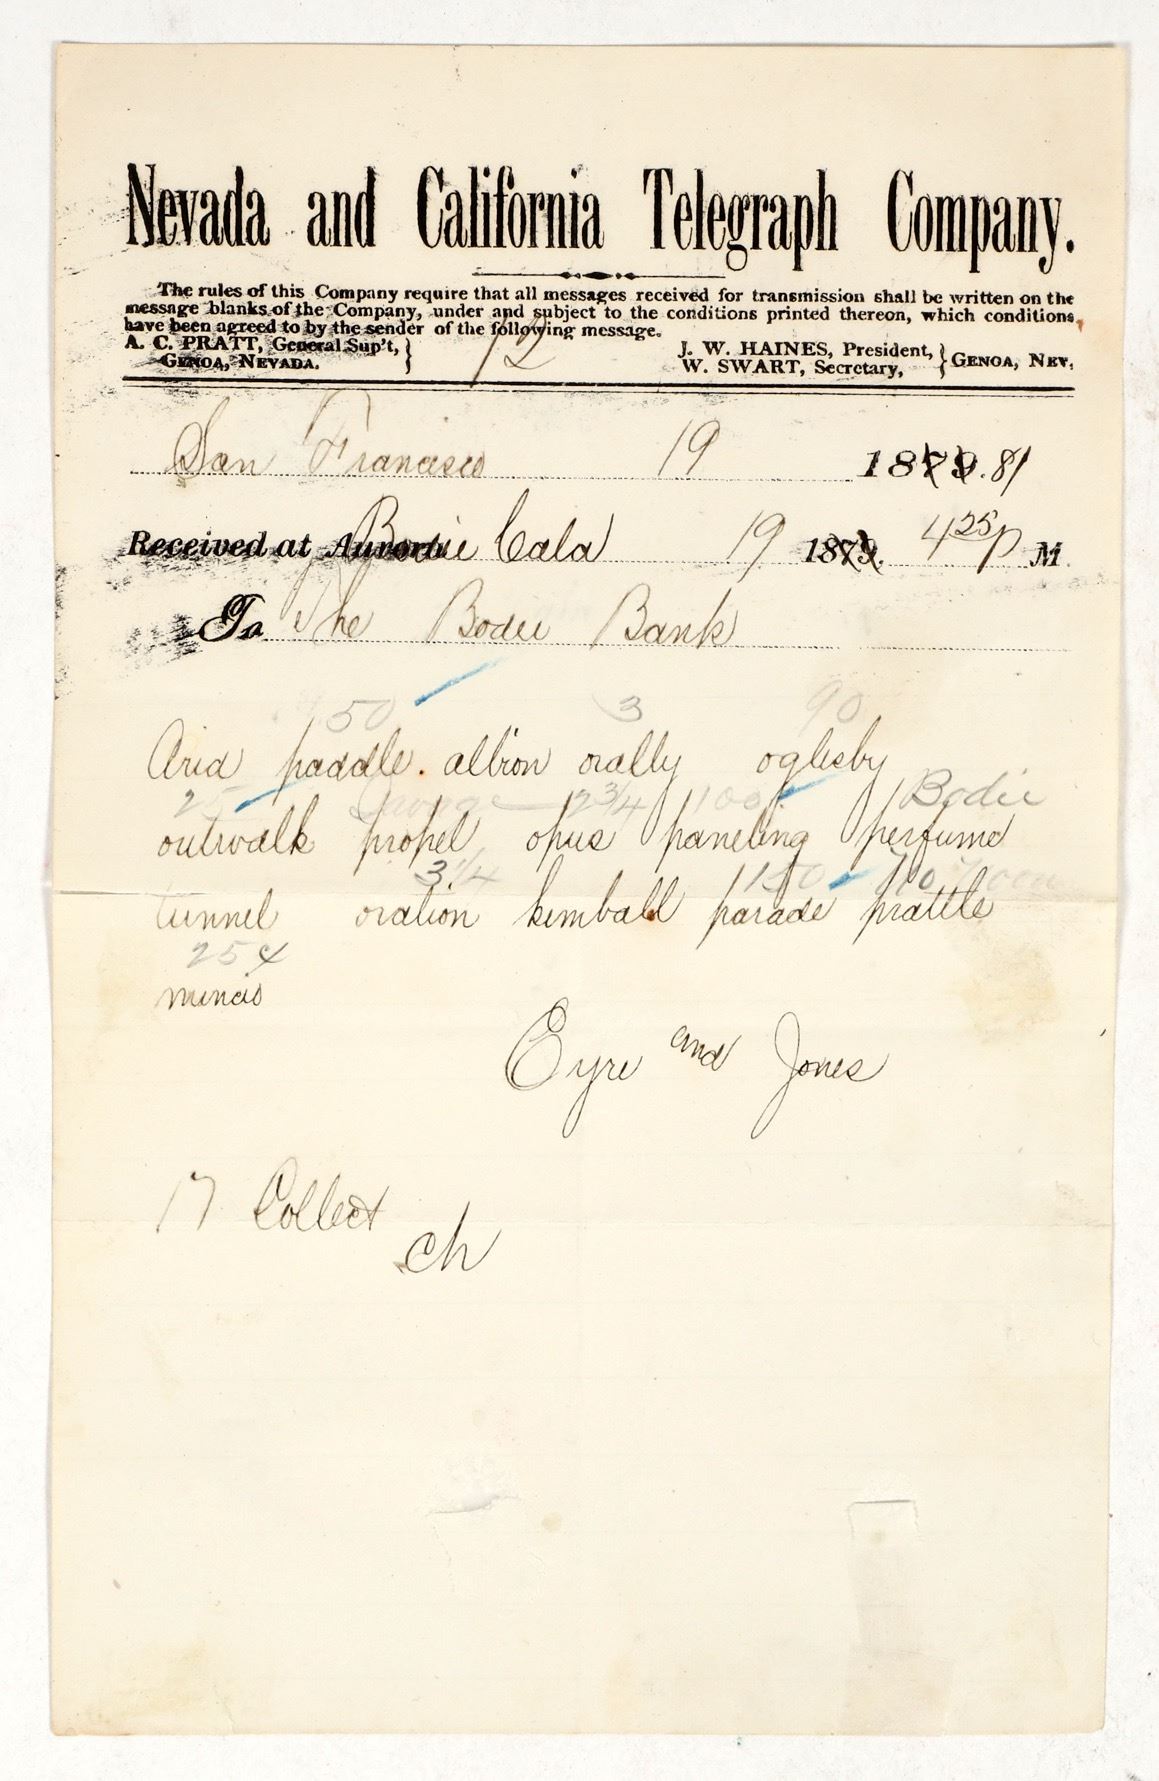 Nevada and California Telegraph Company.
The rules of this Company require that all messages received for transmission shall be written on the
message blanks of the Company, under and subject to the conditions printed thereon, which conditions
have been agreed to by the sender of the following message.
A. C. PRATT, General Sup't,
GENOA, NEVADA.
12
J. W. HAINES, President,
W. SWART, Secretary,
GENOA, NEV.
San Francisco 19 1879. 81
Received at Aurora Bodie Cala 19 1879. 4 25 p M.
To The Bodie Bank
50 3 90
Arid paddle. albion orally oglesby
25 2 3/4 100 Bodie
outwalk propel opus paneling perfume
3 1/4 150
tunnel oration kimball parade prattle
25 ¢
muncis
Eyre and Jones
17 Collect
ch